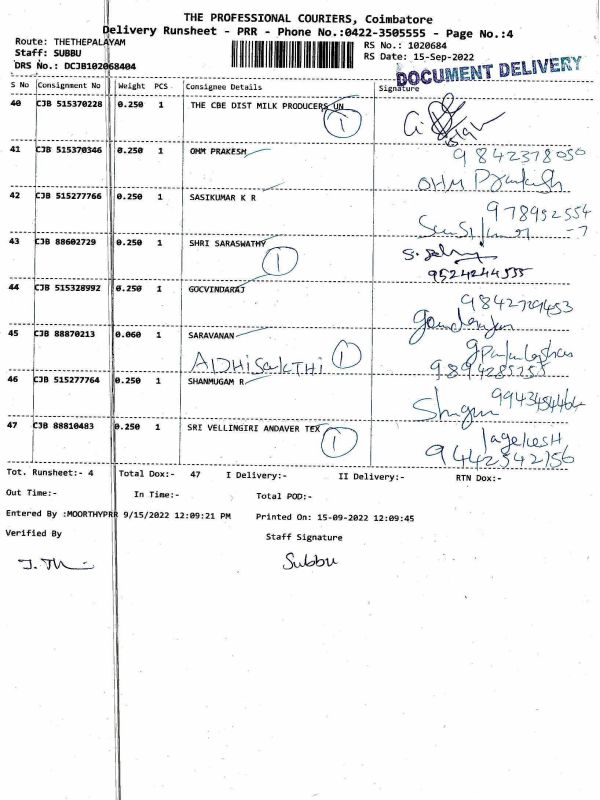 THE PROFESSIONAL COURIERS, Coimbatore
Delivery Runsheet - PRR - Phone No.:0422-3505555 - Page No.:4
Route: THETHEPALAYAM
Staff: SUBBU
DRS No.: DCJB102068404
RS No.: 1020684
RS Date: 15-Sep-2022
DOCUMENT DELIVERY
S No Consignment No Weight PCS Consignee Details Signature
40 CJB 515370228 0.250 1 THE CBE DIST MILK PRODUCERS UN
1
41 CJB 515370346 0.250 1 OHM PRAKESH 9842378050
OHM Prakash
42 CJB 515277766 0.250 1 SASIKUMAR K R 978952554
-7
43 CJB 88602729 0.250 1 SHRI SARASWATHY
1 9524244555
44 CJB 515328992 0.250 1 GOCVINDARAJ
45 CJB 88870213 0.060 1 SARAVANAN
ADHISAKTHI 1 9894285255
46 CJB 515277764 0.250 1 SHANMUGAM R
47 CJB 88810483 0.250 1 SRI VELLINGIRI ANDAVER TEX
1 9442342156
Tot. Runsheet:- 4 Total Dox:- 47 I Delivery:- II Delivery:- RTN Dox:-
Out Time:- In Time:- Total POD:-
Entered By :MOORTHYPRR 9/15/2022 12:09:21 PM Printed On: 15-09-2022 12:09:45
Verified By Staff Signature
Subbu